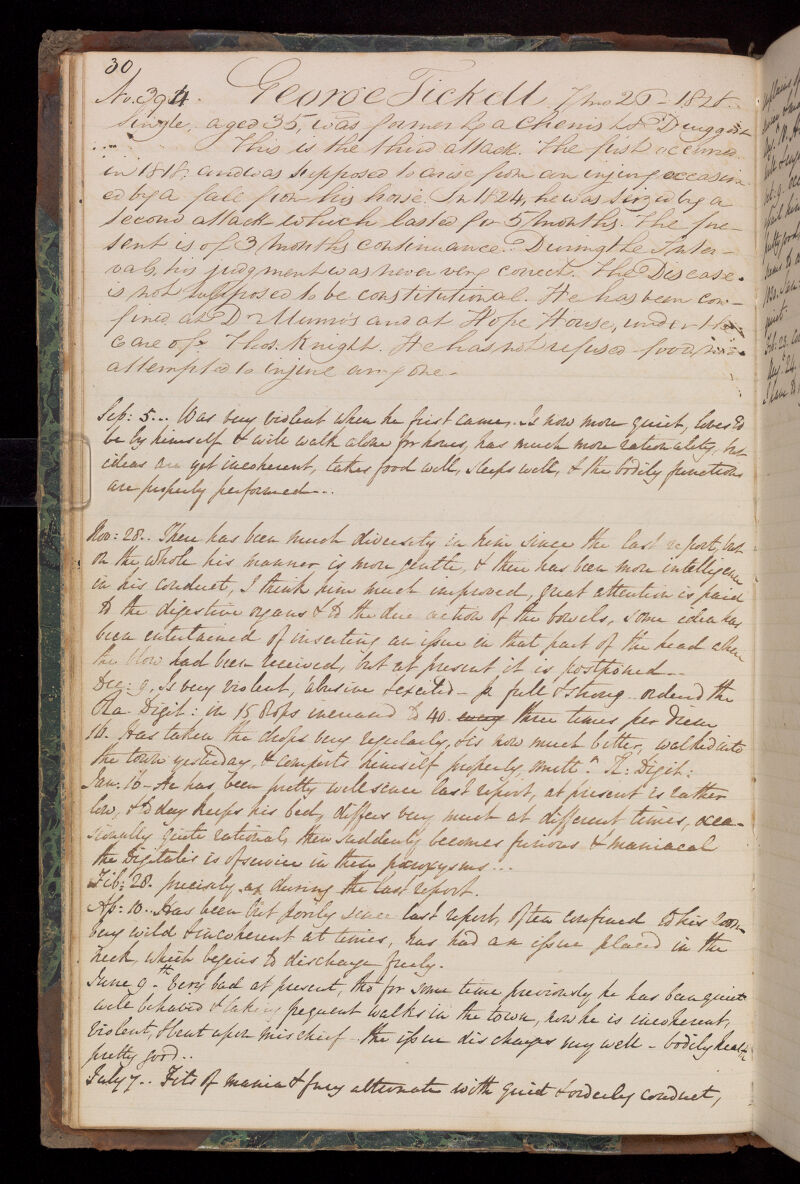 30
No. 394. George Tickell, 7mo 26 - 1828.
Single, aged 35, was formerly a Chemist & Druggist
This is the third attack. The first occurred
in 1818: and was supposed to arise from an injury occasion-
ed by a fall from his horse. In 1824, he was seized by a
second attack which lasted for 5 Months. The pre-
sent is of 3 Months continuance. During the Inter-
vals, his judgment was never very correct. The Disease
is not supposed to be constitutional. He has been con-
fined at Dr Munro's and at Hope House, under the
care of Thos. Knight. He has not refused food, nor
attempted to injure any one.
Sep: 5... Was very violent when he first came, Is now more quiet, loves to
be by himself & will walk alone for hours, has much more rationality, but
ideas are yet incoherent, takes food well, sleeps well, & the bodily functions
are properly performed...
Nov: 28.. There has been much diversity in him since the last report, but
on the whole his manner is more gentle, & there has been more intelligence
in his conduct, I think him much improved, great attention is paid
to the digestive organs & to the due action of the bowels, some idea has
been entertained of inserting an issue in that part of the head where
the blow had been received, but at present it is postponed...
Dec: 9. Is very violent, abusive & excited - full & strong - ordered the
Digit: in 15 drops increased to 40 every three times per diem
16. Has taken the drops very regularly, & is now much better, walked into
the town yesterday, & comports himself properly, Digit:
Jan: 16 - He has been pretty well since last report, at present is rather
low, & to day keeps his bed, differs very much at different times, occa-
sionally quite rational, then suddenly becomes furious & maniacal
the Digitalis is of service in these paroxysms...
Feb: 28. precisely as during the last report.
Ap: 10.. Has been but poorly since last report, Often confined to his room
very wild & incoherent at times, has had an issue placed in the
neck, which begins to discharge freely.
June 9th Very bad at present, tho' for some time previously he has been quiet
well behaved & taking frequent walks in the town, now he is incoherent,
violent, & bent upon mischief - the issue discharges very well - bodily health
pretty good..
July 7.. Fits of mania & fury alternate with quiet & orderly conduct,